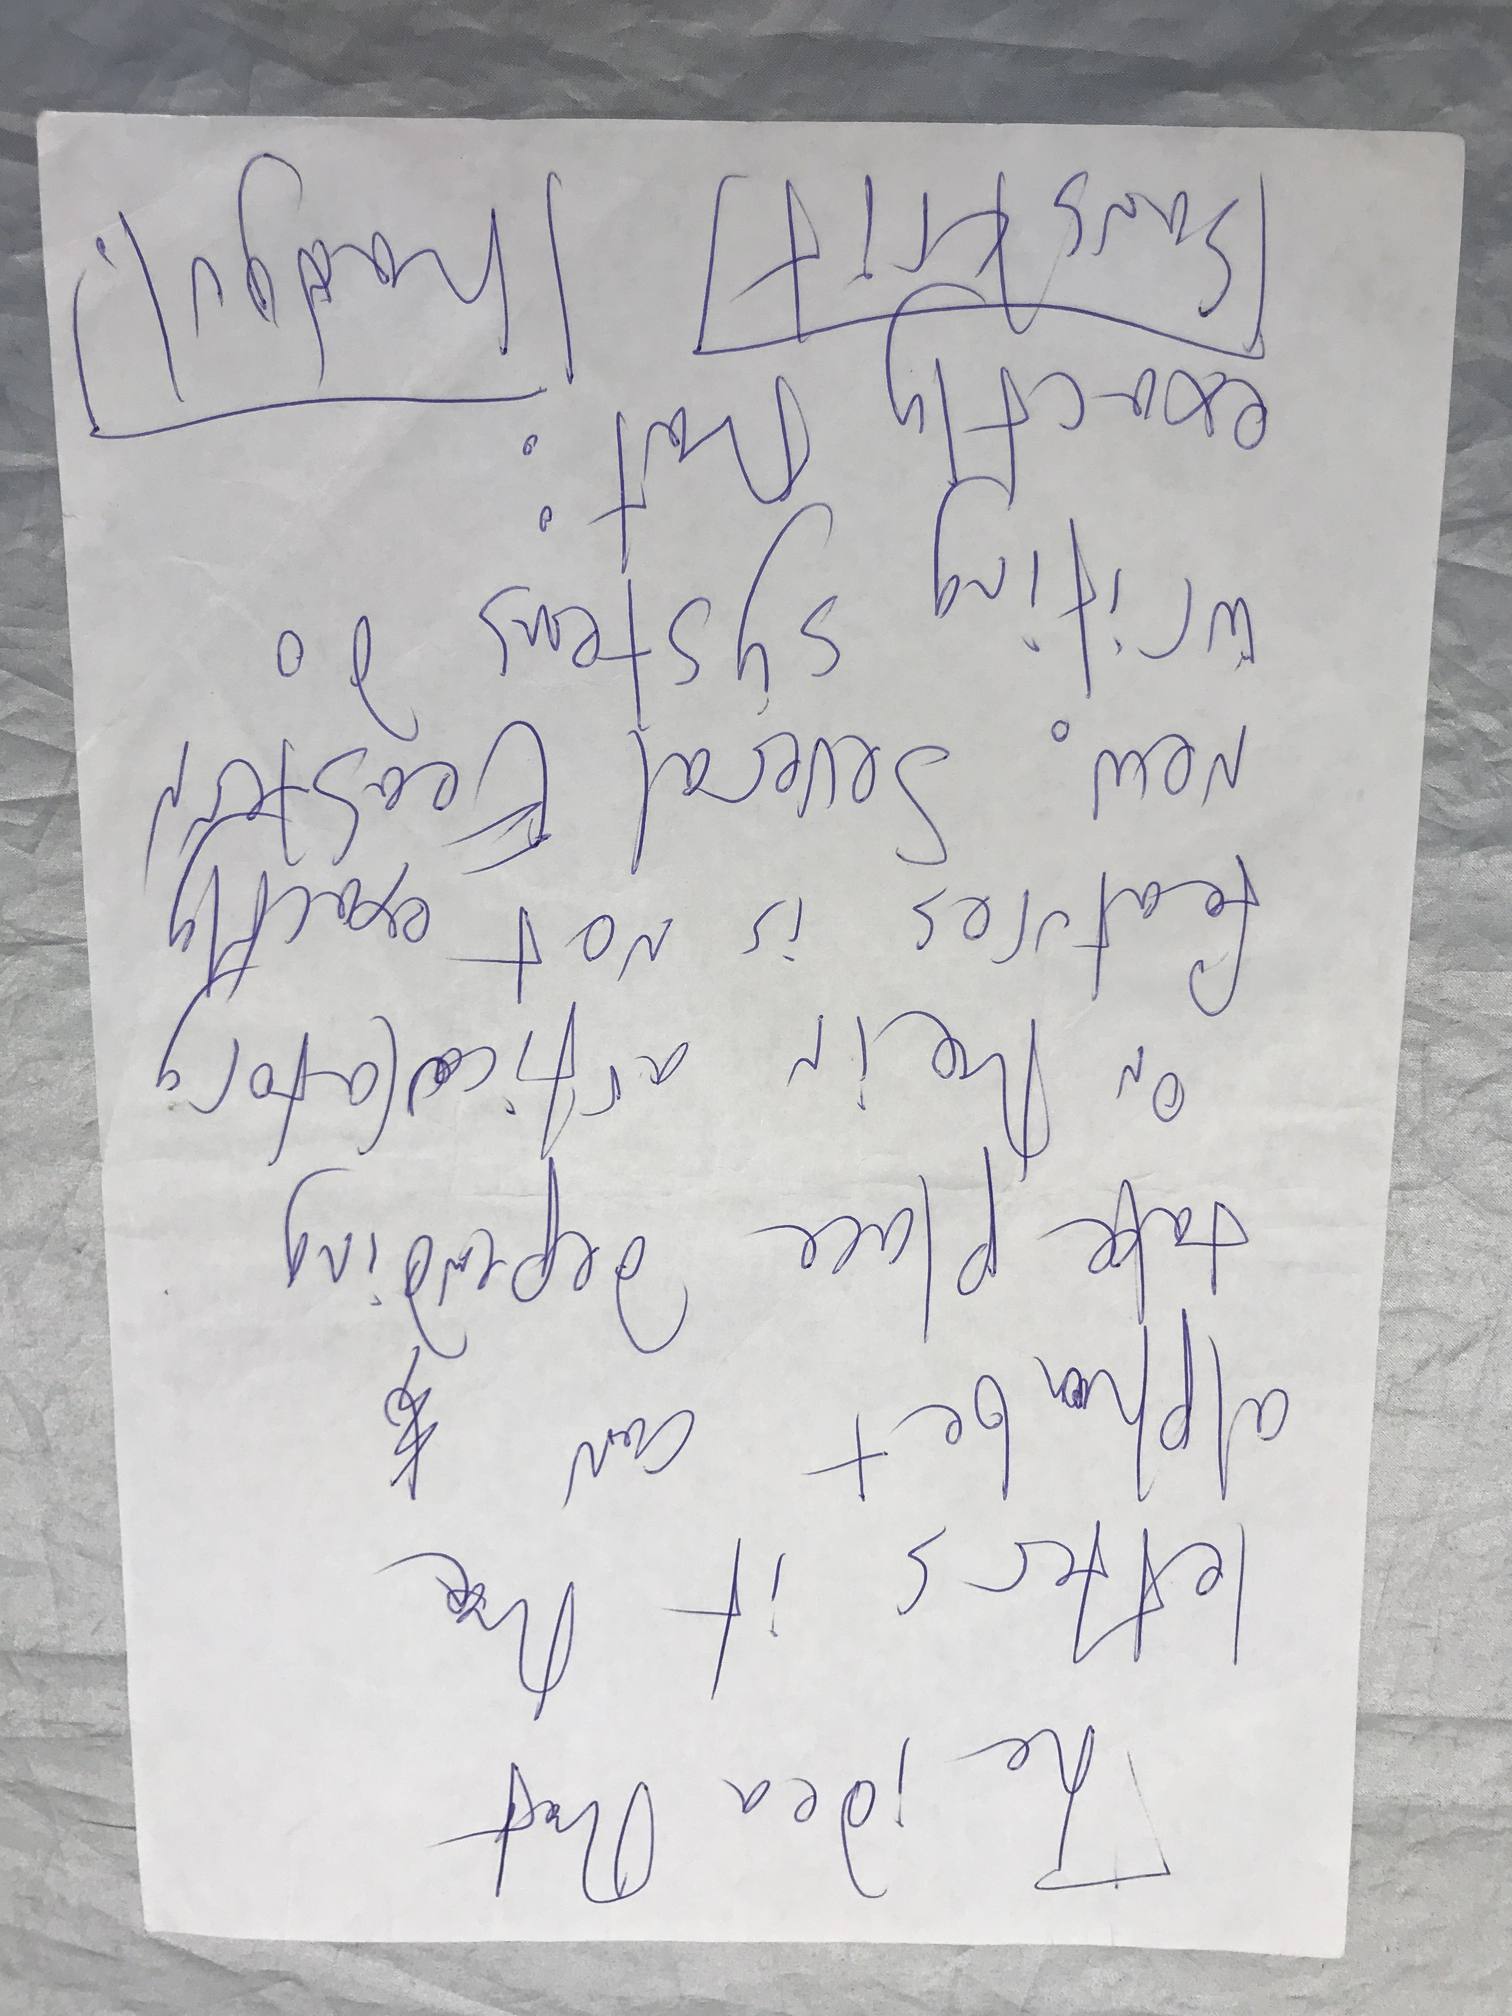 The idea that
letters it the
alphabet can
take place depending
on their articulatory
features is not exactly
new. Several Eeastern
writing systems do
exactly that :
[Sanskrit]